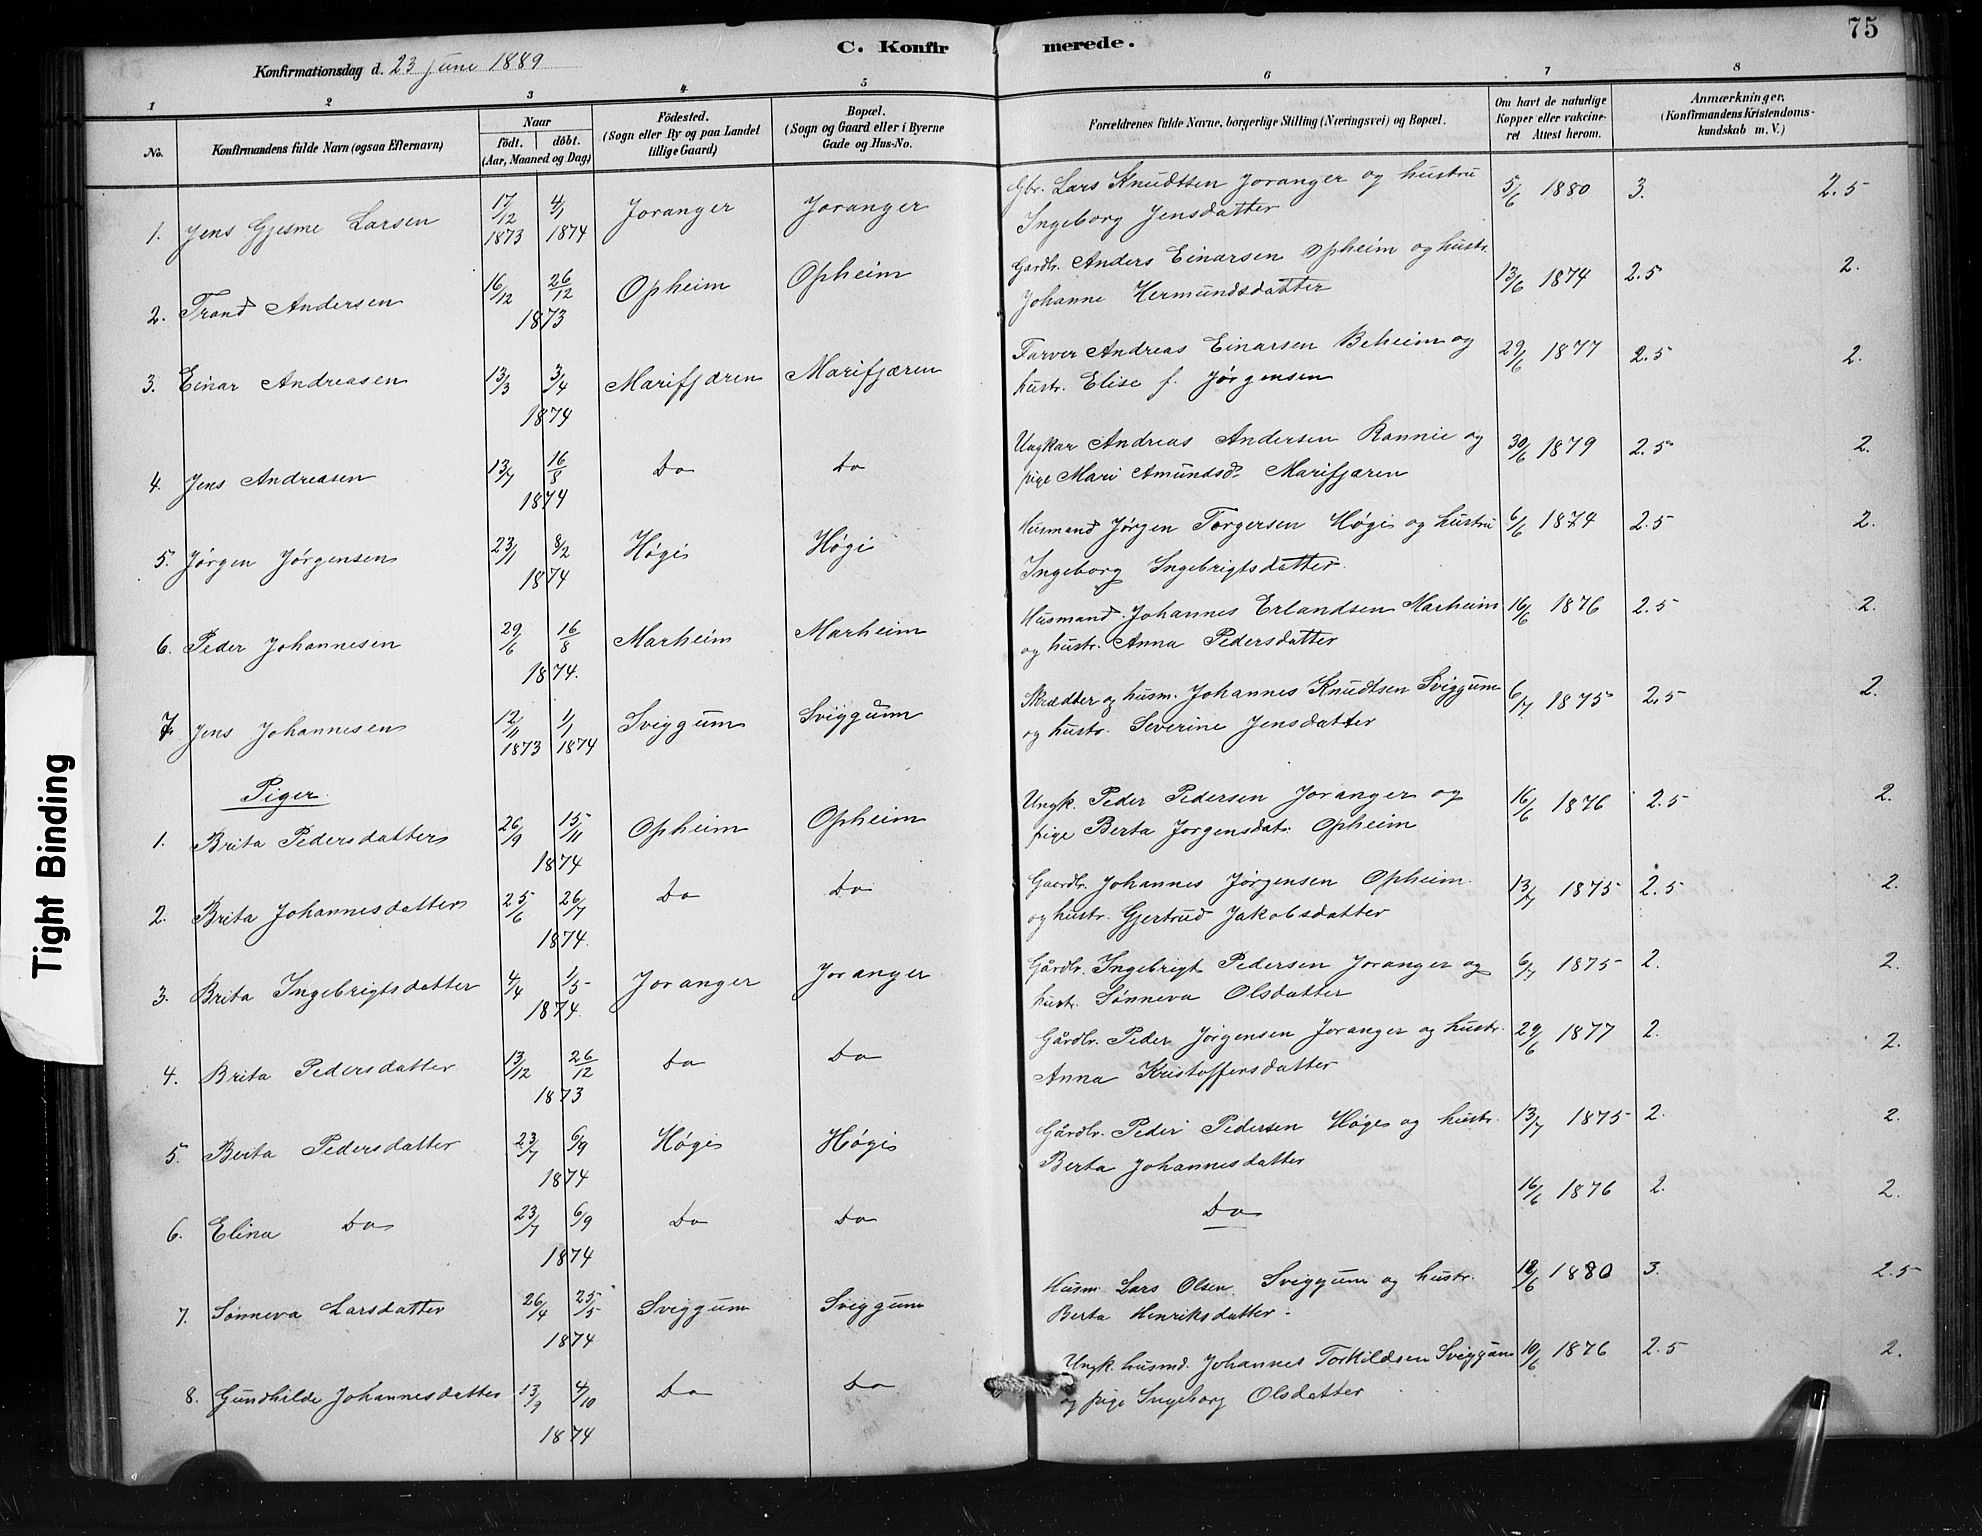 75
C. Konfirmerede.
Konfirmationsdag d. 23 Juni 1889
1 2 3 4 5 6 7 8
No. Konfirmandens fulde Navn (ogsaa Efternavn) Naar født. døbt. (Aar, Maaned og Dag) Fødested. (Sogn eller By og paa Landet tillige Gaard) Bopæl. (Sogn og Gaard eller i Byerne Gade og Hus-No. Forældrenes fulde Navne, borgerlige Stilling (Næringsvei) og Bopæl. Om havt de naturlige Kopper eller vakcineret Attest herom. Anmærkninger. (Konfirmandens Kristendomskundskab m. V.)
1. Jens Gjesme Larsen 17/12 1873 4/1 1874 Joranger Joranger Gbr. Lars Knudtsen Joranger og hustru 5/6 1880 3. 2.5
Ingeborg Jensdatter
2. Trond Andersen 16/12 26/12 1873 Opheim Opheim Gardbr. Anders Einarsen Opheim og hustr. 13/6 1874 2.5 2.
Johanne Hermundsdatter
3. Einar Andreasen 13/3 3/4 1874 Marifjæren Marifjæren Farver Andreas Einarsen Beheim og 29/6 1877 2.5 2.
hustr. Elise f. Jørgensen
4. Jens Andreasen 13/7 16/8 1874 Do Do Ungkar Andreas Andersen Ronnie og 30/6 1879 2.5 2.
pige Mari Amundsd. Marifjæren
5. Jørgen Jørgensen 23/1 8/2 1874 Høgi Høgi Husmand Jørgen Torgersen Høgi og hustru 6/6 1874 2.5 2.
Ingeborg Ingebrigtsdatter.
6. Peder Johannesen 29/6 16/8 1874. Marheim Marheim Husmand. Johannes Erlandsen Marheim 16/6 1876 2.5 2.
og hustr. Anna Pedersdatter
7. Jens Johannesen 12/11 1873 1/1 1874 Sviggum Sviggum Skrædder og husm. Johannes Knudtsen Sviggum 6/7. 1875 2.5 2.
og hustr. Severine Jensdatter
Piger.
1. Brita Pedersdatter 26/9 15/11 1874 Opheim Opheim Ungk. Peder Pedersen Joranger og 16/6 1876 2.5 2.
pige Berta Jørgensdat. Opheim
2. Brita Johannesdatter 25/6 26/7 1874. Do Do Gaardbr. Johannes Jørgensen Opheim. 13/7 1875 2.5 2.
og hustr. Gjertrud Jakobsdatter
3. Brita Ingebrigtsdatter 4/4 1/5 1874. Joranger Joranger Gårdbr. Ingebrigt Pedersen Joranger og 6/7 1875 2. 2.
hustr. Sønneva Olsdatter
4. Brita Pedersdatter 13/12 26/12 1873 Do Do Gårdbr. Peder Jørgensen Joranger og hustr. 29/6 1877 2. 2.
Anna Kristoffersdatter
5. Berta Pedersdatter 23/7 6/9 1874 Høgi Høgi Gårdbr. Peder Pedersen Høgi og hustr. 13/7 1875 2. 2.
Berta Johannesdatter
6. Elina Do 23/7 6/9 1874 Do Do Do 16/6 1876 2. 2.
7. Sønneva Larsdatter 26/4 25/5 1874 Sviggum Sviggum Husm. Lars Olsen. Sviggum og hustr. 18/6 1880 3. 2.5
Berta Henriksdatter.
8. Gundhilde Johannesdatter 13/9 4/10 1874 Do Do Ungk. husmd. Johannes Torkildsen Sviggum 10/6 1876 2.5 2.
og pige Ingeborg Olsdatter
Tight Binding